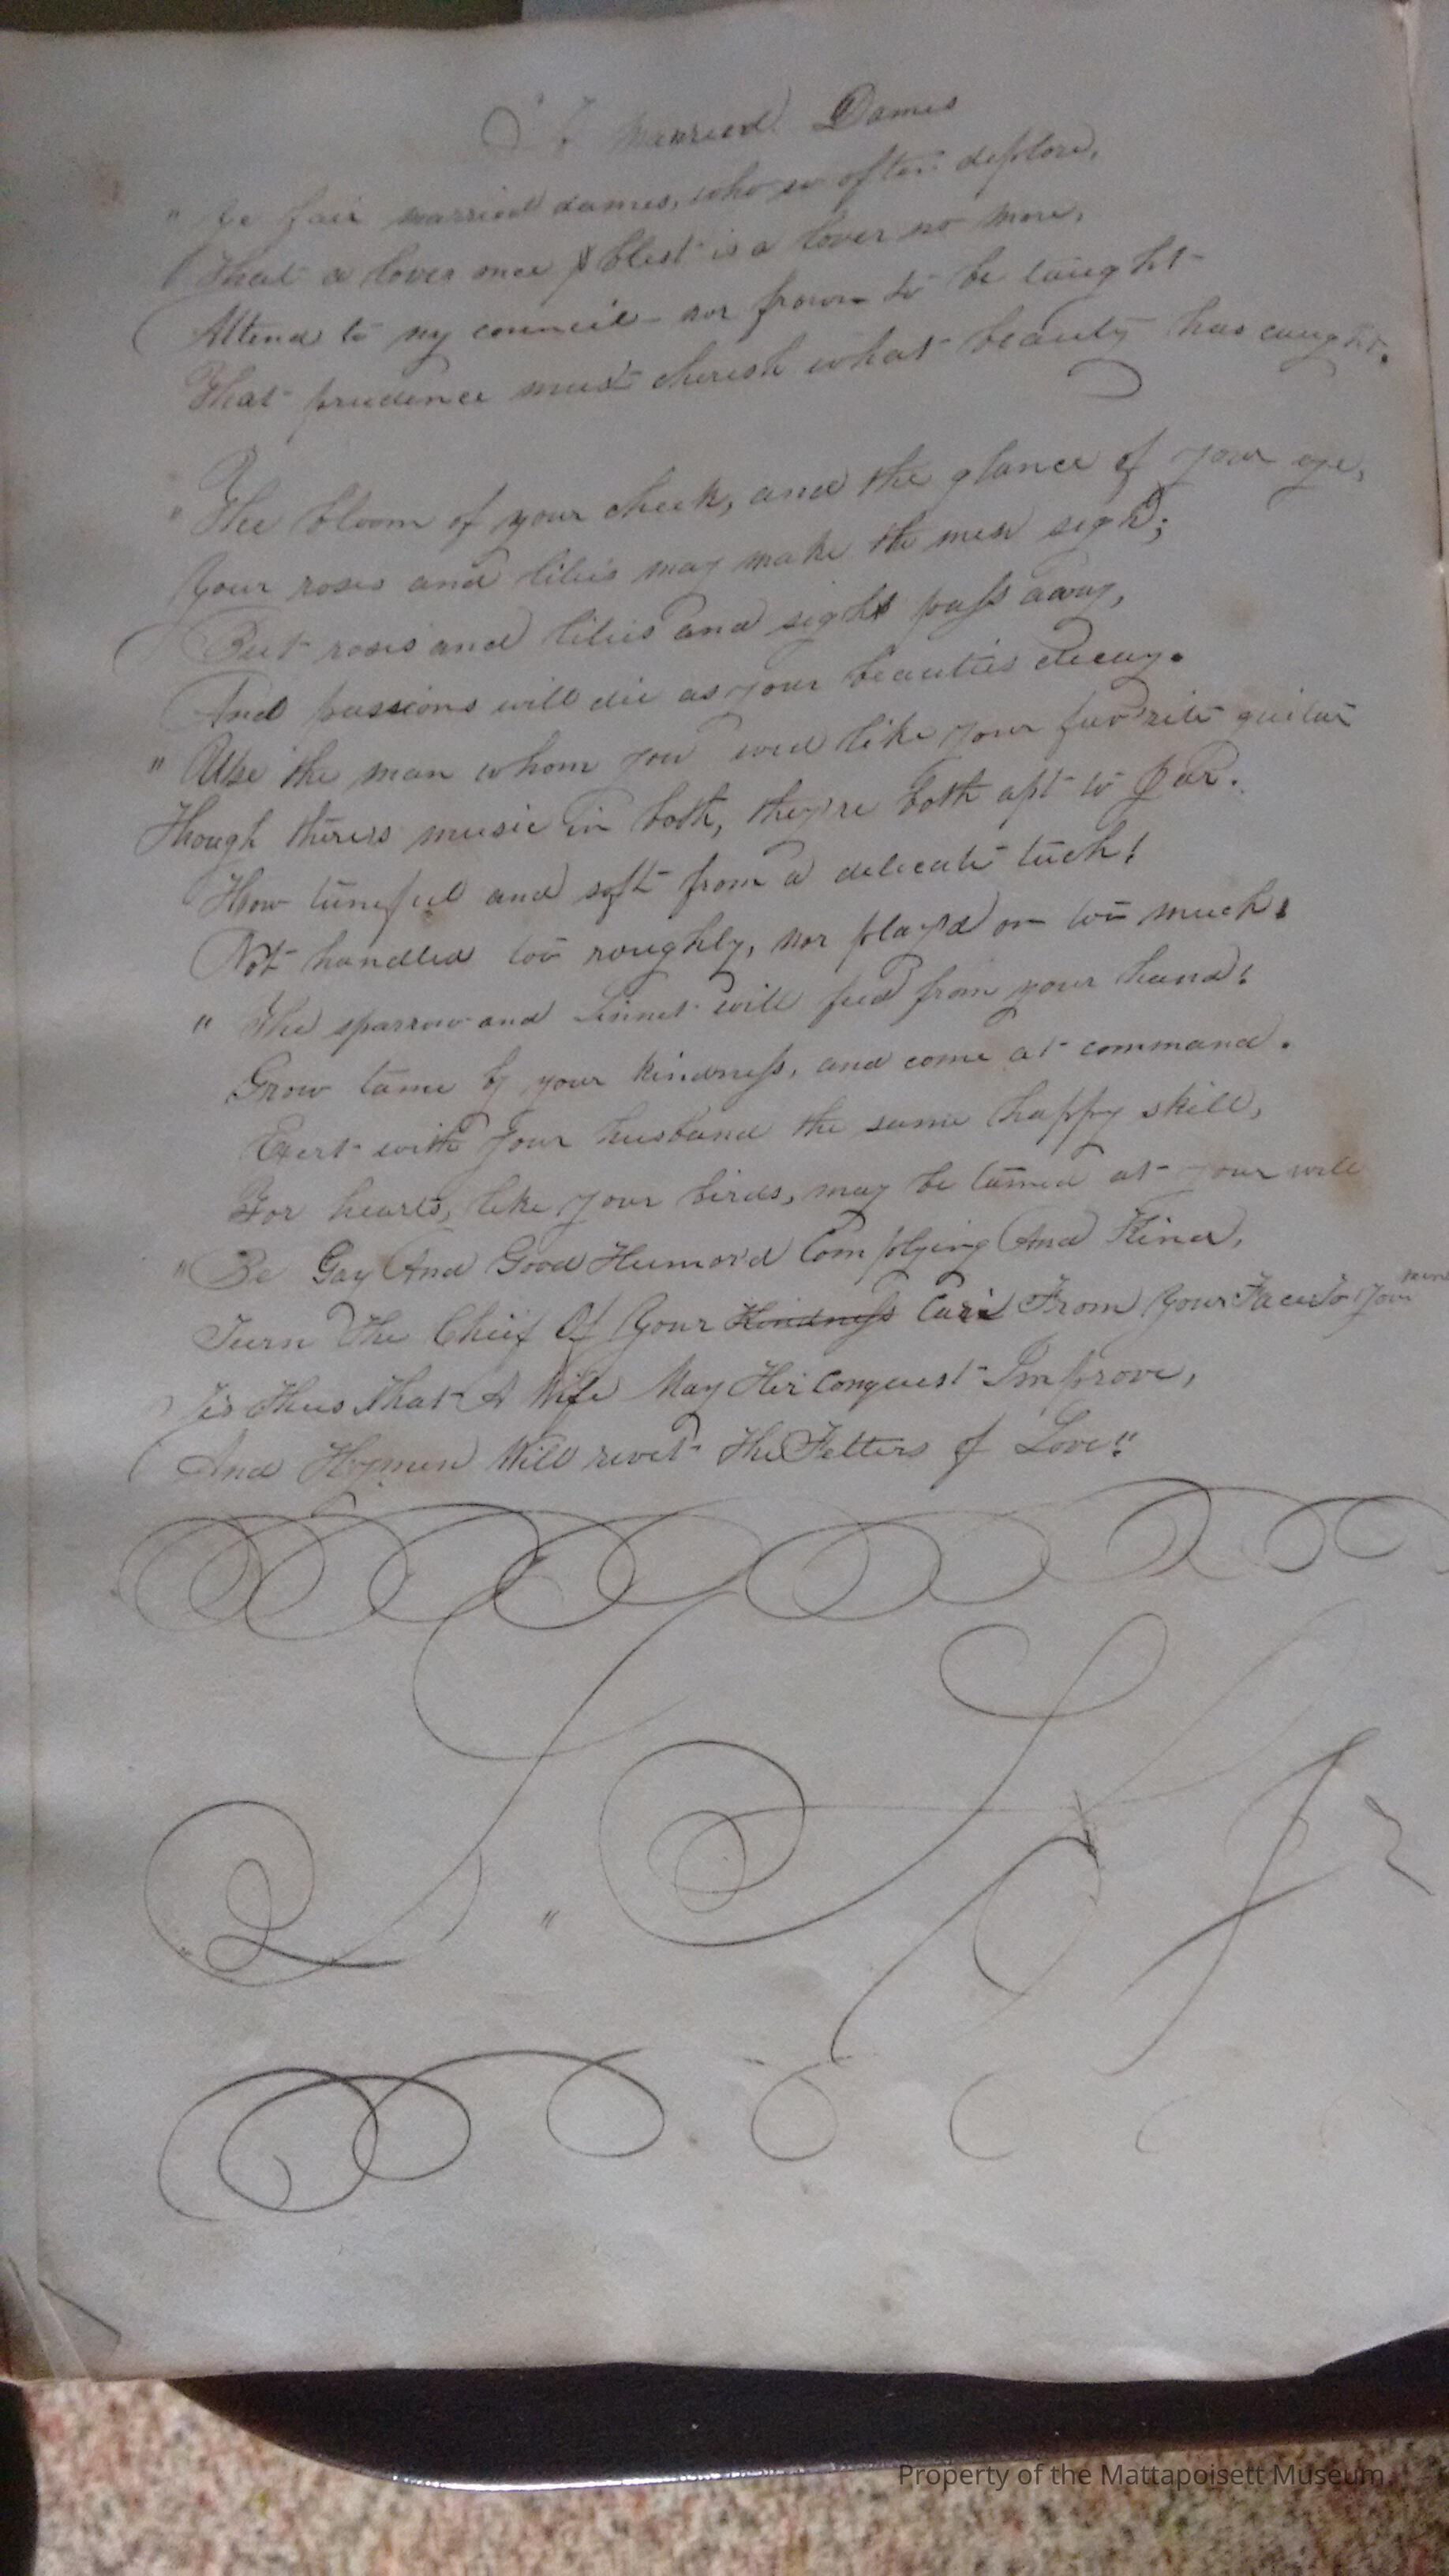 To Married Dames
" Ye fair married dames, who so often deplore,
That a lover once blest is a lover no more,
Attend to my council nor frown to be taught
That prudence must cherish what beauty has caught.
" The bloom of your cheek, and the glance of your eye,
Your roses and lilies may make the men sigh;
But roses and lilies and sighs pass away,
And passions will die as your beauties decay.
" Use the man whom you wed like your fav'rite guitar
Though there's music in both, they're both apt to jar.
How tuneful and soft from a delicate tuch!
Not handled too roughly, nor play'd on too much!
" The sparrow and linnet will feed from your hand!
Grow tame by your kindness, and come at command.
Exert with your husband the same happy skill,
For hearts, like your birds, may be tamed at your will
" Be Gay And Good Humor'd Complying And Kind,
Turn The Chief Of Your Kindness Care From Your Face To Your mind
Tis Thus That A Wife May Her Conquest Improve,
And Hymen Will rivet The Fetters of Love"
Property of the Mattapoisett Museum